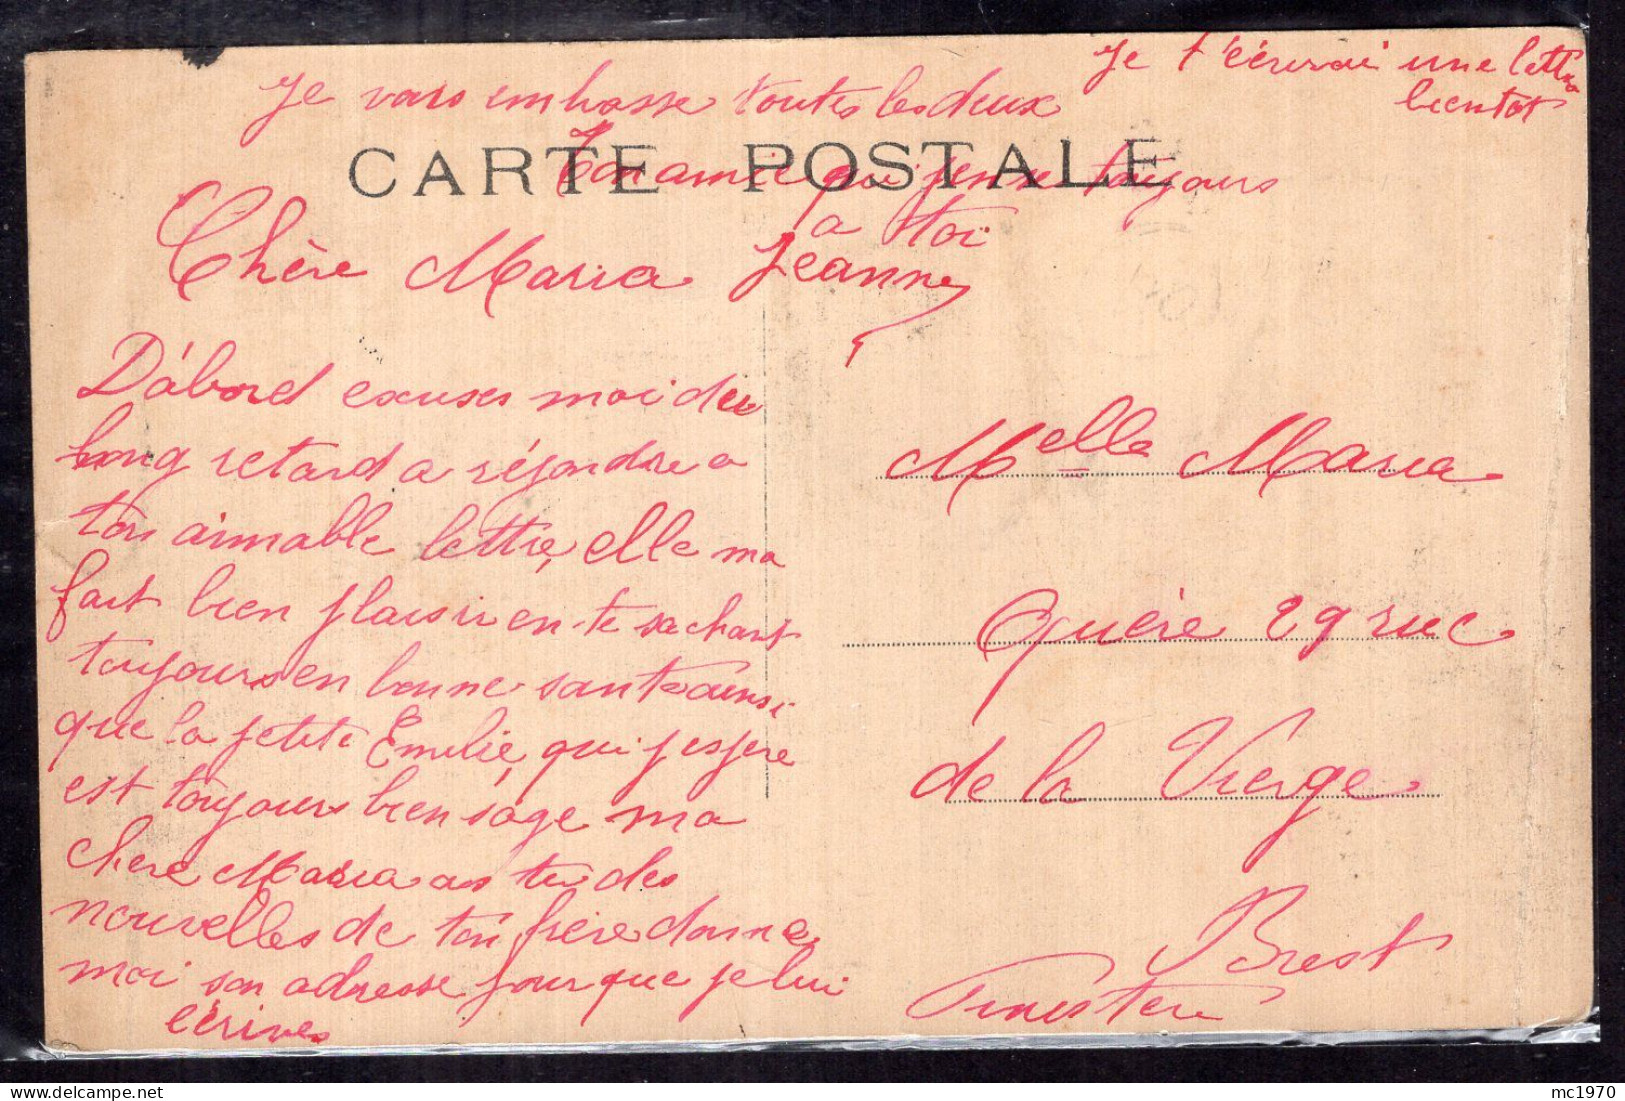 Je t'écrirai une lettre
bientot
je vais embrasse toutes les deux
CARTE POSTALE
Ton amie qui pense toujours
a toi
Jeanne
Chère Maria
D'abord excuses moi du
long retard a répondre a
ton aimable lettre, elle ma
fait bien plaisir en te sachant
toujours en bonne santé ainsi
que la petite Emilie, qui j espère
est toujours bien sage ma
chère Maria as tu des
nouvelles de ton frère donne
moi son adresse pour que je lui
écrives
Melle Maria
Quéré 29 rue
de la Vierge
Brest
Finistère
mc1970